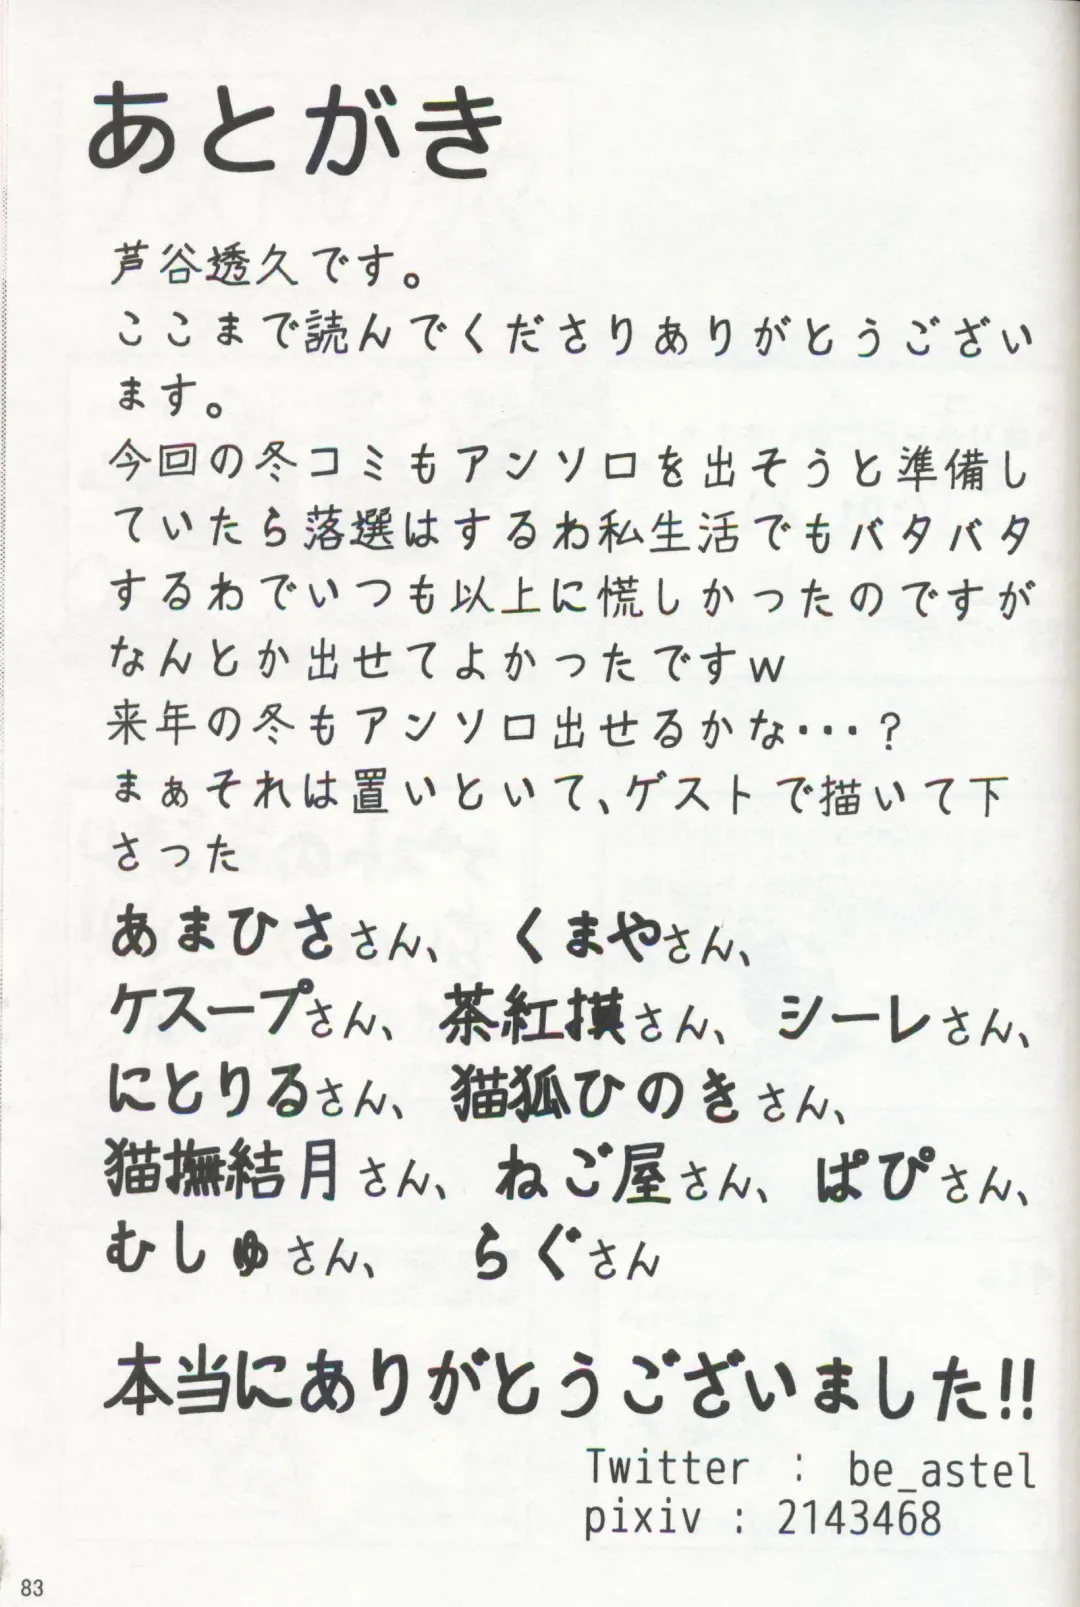 あとがき
芦谷透久です。
ここまで読んでくださりありがとうござい
ます。
今回の冬コミもアンソロを出そうと準備し
ていたら落選はするわ私生活でもバタバタ
するわでいつも以上に慌しかったのですが
なんとか出せてよかったですw
来年の冬もアンソロ出せるかな・・・?
まぁそれは置いといて、ゲストで描いて下
さった
あまひささん、 くまやさん、
ケスープさん、 茶紅摸さん、 シーレさん、
にとりるさん、 猫狐ひのきさん、
猫撫結月さん、 ねご屋さん、 ぱぴさん、
むしゅさん、 らぐさん
本当にありがとうございました!!
Twitter : be_astel
pixiv : 2143468
83